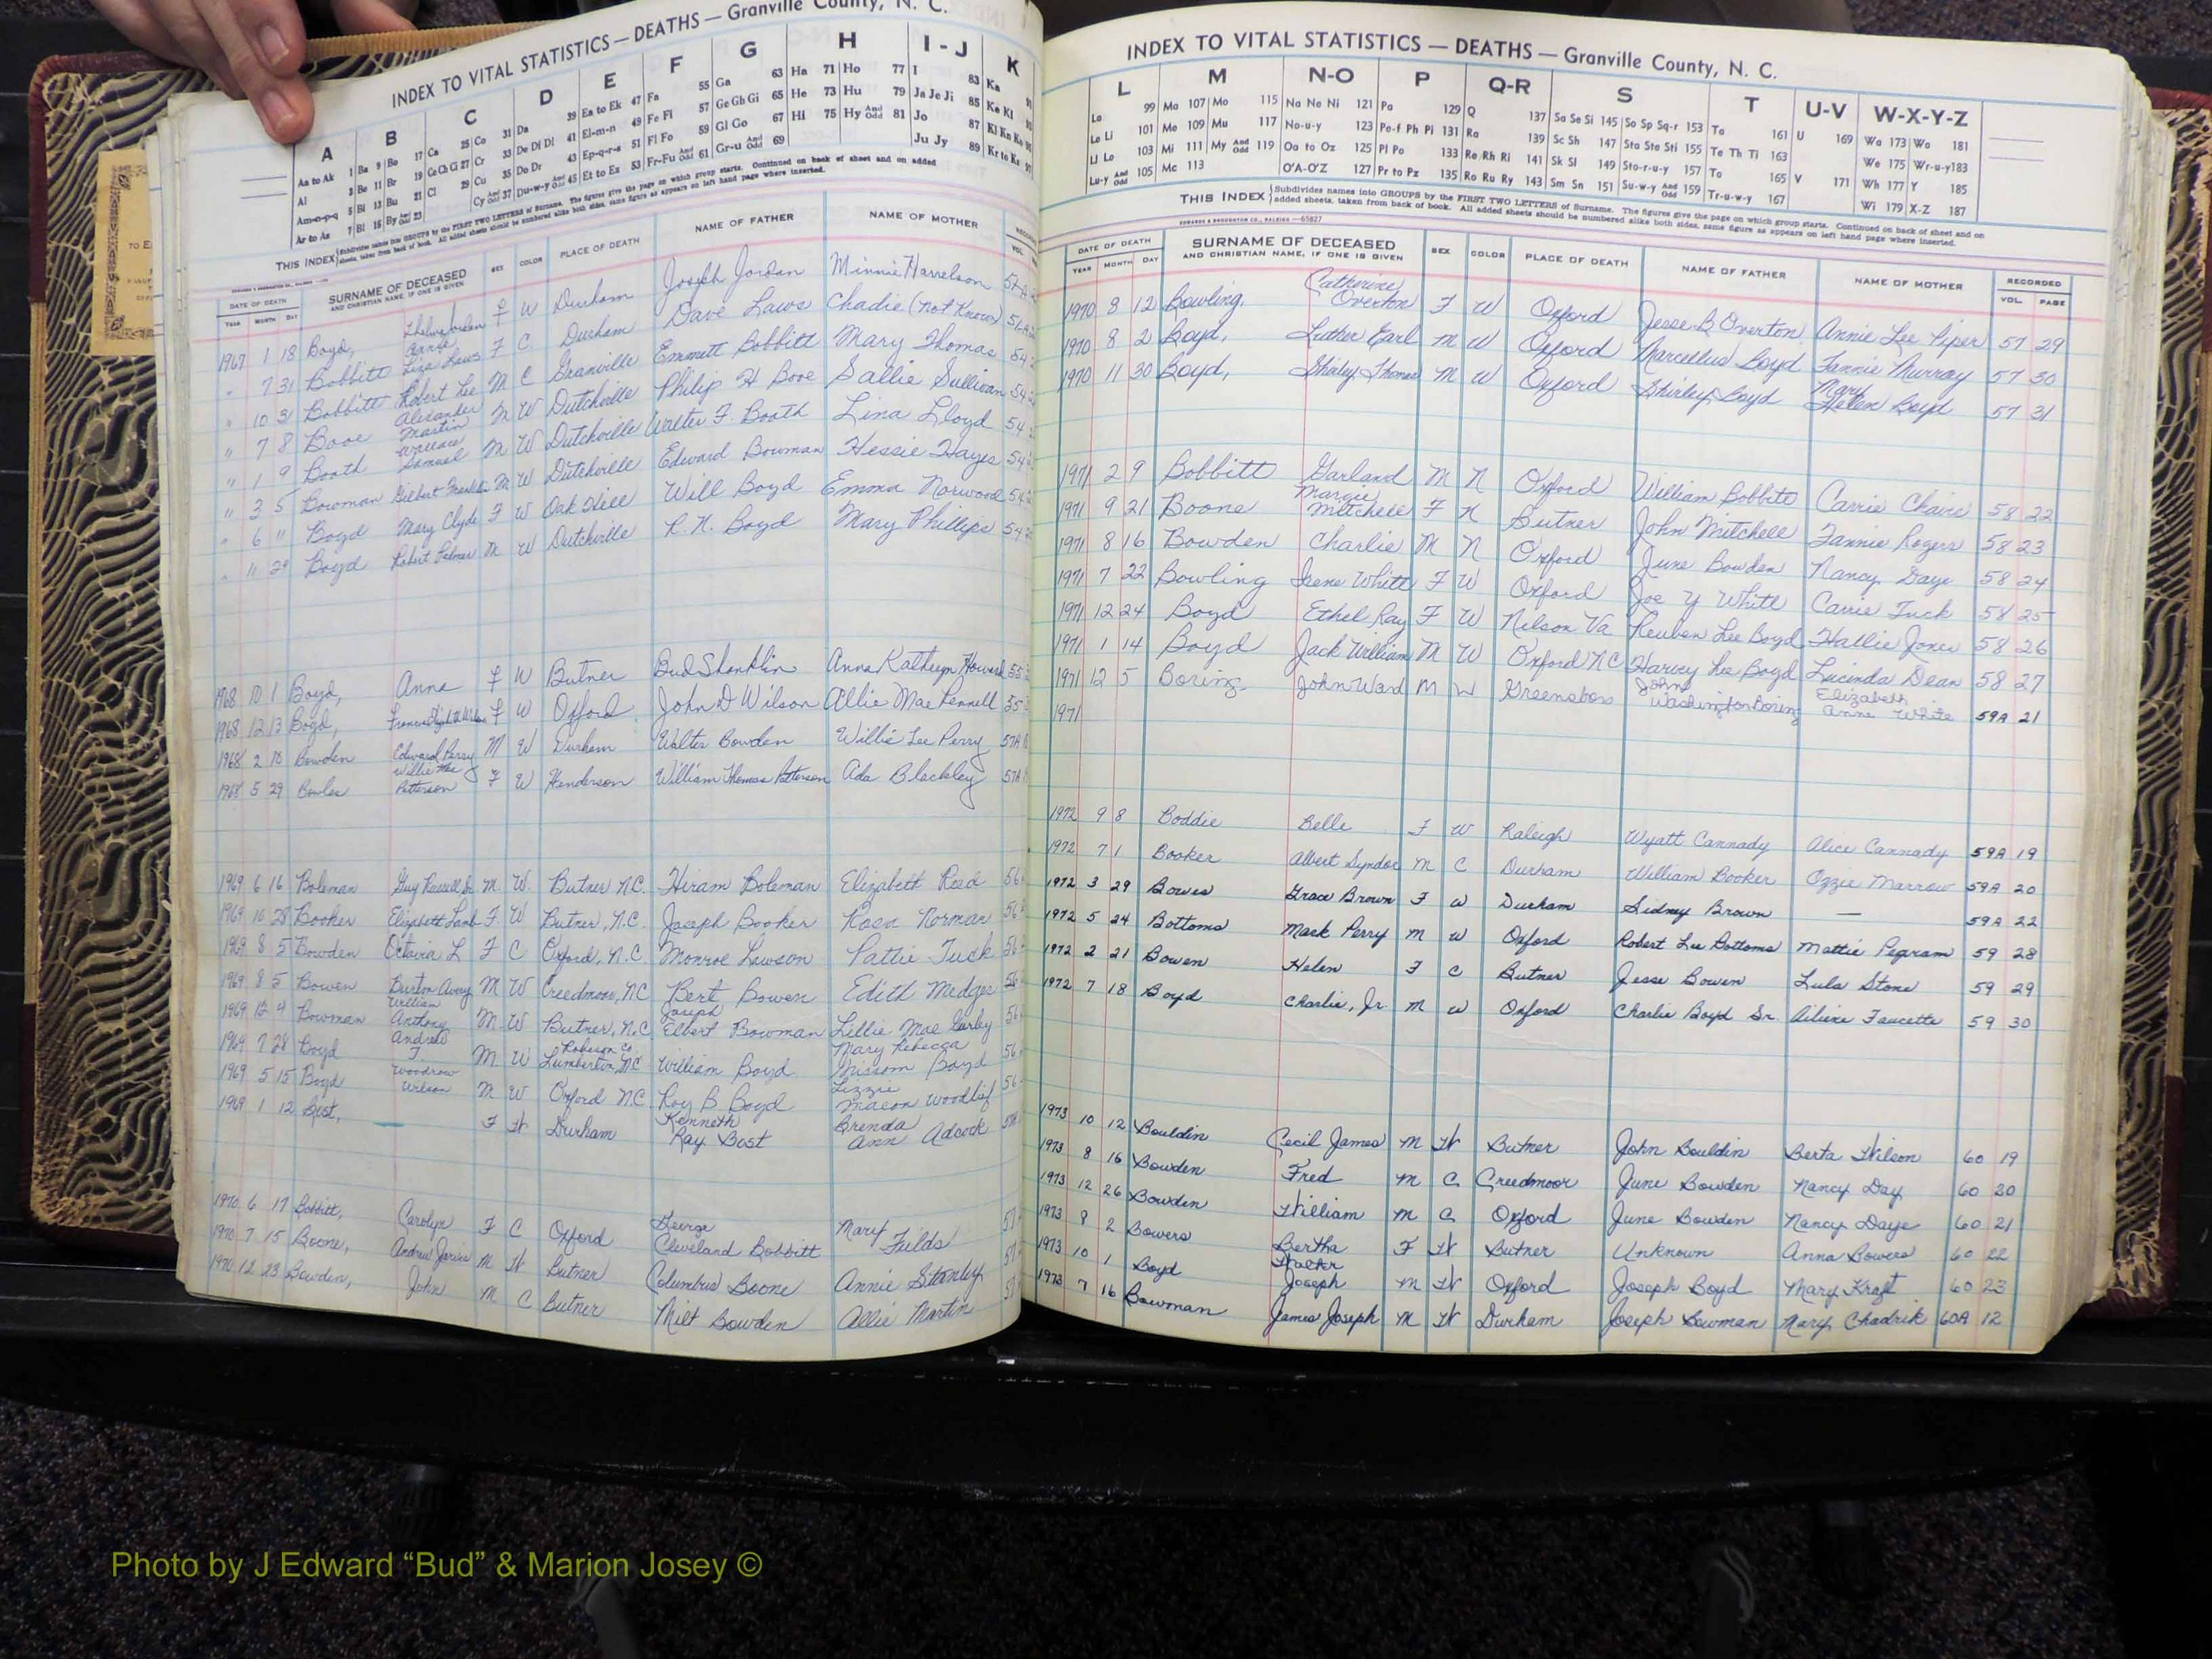 INDEX TO VITAL STATISTICS — DEATHS — Granville County, N. C.
A B C D E F G H I - J K
THIS INDEX
DATE OF DEATH
YEAR MONTH DAY
SURNAME OF DECEASED
AND CHRISTIAN NAME, IF ONE IS GIVEN
SEX COLOR PLACE OF DEATH NAME OF FATHER NAME OF MOTHER
1967 1 18 Boyd, F W Durham Joseph Jordan Minnie Harrelson
" 7 31 Bobbitt Annie Liza Laws F C Durham Dave Laws Chadie (not Known)
" 10 31 Bobbitt Robert Lee M C Granville Emmett Bobbitt Mary Thomas 54
" 7 8 Booe Alexander Martin M W Dutchville Philip H Booe Sallie Sullivan 54
" 1 9 Booth Wallace Samuel M W Dutchville Walter F. Booth Lina Lloyd 54
" 3 5 Bowman Gilbert Franklin M W Dutchville Edward Bowman Hessie Hayes 54
" 6 11 Boyd Mary Clyde F W Oak Hill Will Boyd Emma Norwood 54
" 11 29 Boyd Robert Palmer M W Dutchville R. N. Boyd Mary Phillips 54
1968 10 1 Boyd, Anna F W Butner Bud Shanklin Anna Kathryn Howard 55
1968 12 13 Boyd, F W Oxford John D Wilson Allie Mae Pennell 55
1968 2 18 Bowden Edward Perry M W Durham Walter Bowden Willie Lee Perry 57A
1968 5 29 Bowles Willie Mae Patterson F W Henderson William Thomas Patterson Ada Blackley 57A
1969 6 16 Boleman Guy Russell Sr. M. W. Butner N.C. Hiram Boleman Elizabeth Reed 56
1969 10 28 Booker Elizabeth Lamb F. W Butner, N.C. Joseph Booker Rosa Norman 56
1969 8 5 Bowden Octavia L F C Oxford, N.C. Monroe Lawson Pattie Tuck 56
1969 8 5 Bowen Burton Avery M W Creedmoor, NC Bert Bowen Edith Medges 56
1969 12 9 Bowman William Anthony M. W. Butner, N.C Joseph Elbert Bowman Lillie Mae Gurley 56
1969 7 28 Boyd Andrew J. M W Robeson Co. Lumberton, NC William Boyd Mary Rebecca Missom Boyd 56
1969 5 15 Boyd Woodrow Wilson M W Oxford NC Roy B Boyd Lizzie Macon Woodlief 56
1969 1 12 Bost, — F W Durham Kenneth Ray Bost Brenda Ann Adcock
1970 6 17 Bobbitt, Carolyn F C Oxford George Cleveland Bobbitt Mary Fields 57
1970 7 15 Boone, Andrew Jarvis M W Butner Columbus Boone Annie Stanley 57
1970 12 23 Bowden, John M C Butner Milt Bowden Allie Martin
INDEX TO VITAL STATISTICS — DEATHS — Granville County, N. C.
L M N-O P Q-R S T U-V W-X-Y-Z
La 99 Ma 107 Mo 115 Na Ne Ni 121 Pa 129 Q 137 Sa Se Si 145 So Sp Sq-r 153 Ta 161 U 169 Wa 173 Wo 181
Le Li 101 Me 109 Mu 117 No-u-y 123 Pe-f Ph Pi 131 Ra 139 Sc Sh 147 Sta Ste Sti 155 Te Th Ti 163 We 175 Wr-u-y 183
Ll Lo 103 Mi 111 My And Odd 119 Oa to Oz 125 Pl Po 133 Re Rh Ri 141 Sk Sl 149 Sto-r-u-y 157 To 165 V 171 Wh 177 Y 185
Lu-y And Odd 105 Mc 113 O'A-O'Z 127 Pr to Pz 135 Ro Ru Ry 143 Sm Sn 151 Su-w-y And Odd 159 Tr-u-w-y 167 Wi 179 X-Z 187
THIS INDEX Subdivides names into GROUPS by the FIRST TWO LETTERS of Surname. The figures give the page on which group starts. Continued on back of sheet and on
added sheets, taken from back of book. All added sheets should be numbered alike both sides, same figure as appears on left hand page where inserted.
EDWARDS & BROUGHTON CO., RALEIGH —65827
DATE OF DEATH
YEAR MONTH DAY
SURNAME OF DECEASED
AND CHRISTIAN NAME, IF ONE IS GIVEN
SEX COLOR PLACE OF DEATH NAME OF FATHER NAME OF MOTHER RECORDED
VOL. PAGE
1970 8 12 Bowling, Catherine Overton F W Oxford Jesse B Overton Annie Lee Piper 57 29
1970 8 2 Boyd, Luther Earl M W Oxford Marcellus Boyd Fannie Murray 57 30
1970 11 30 Boyd, Shirley Thomas M W Oxford Shirley Boyd Mary Helen Boyd 57 31
1971 2 9 Bobbitt Garland M N Oxford William Bobbitt Carrie Chavis 58 22
1971 9 21 Boone Margie Mitchell F N Butner John Mitchell Fannie Rogers 58 23
1971 8 16 Bowden Charlie M N Oxford June Bowden Nancy Daye 58 24
1971 7 22 Bowling Irene Whitt F W Oxford Joe Y Whitt Carrie Tuck 58 25
1971 12 24 Boyd Ethel Ray F W Nelson Va Reuben Lee Boyd Hallie Jones 58 26
1971 1 14 Boyd Jack William M W Oxford NC Harvey Lee Boyd Lucinda Dean 58 27
1971 12 5 Boring John Ward M W Greensboro John Washington Boring Elizabeth Anne White 59A 21
1971
1972 9 8 Boddie Belle F W Raleigh Wyatt Cannady Alice Cannady 59A 19
1972 7 1 Booker Albert Syndor M C Durham William Booker Ozzie Marrow 59A 20
1972 3 29 Bowes Grace Brown F W Durham Sidney Brown — 59A 22
1972 5 24 Bottoms Mack Perry M W Oxford Robert Lee Bottoms Mattie Pegram 59 28
1972 2 21 Bowen Helen F C Butner Jesse Bowen Lula Stone 59 29
1972 7 18 Boyd Charlie, Jr M W Oxford Charlie Boyd Sr. Ailiene Faucette 59 30
1973 10 12 Bouldin Cecil James M W Butner John Bouldin Berta Wilson 60 19
1973 8 16 Bowden Fred M C Creedmoor June Bowden Nancy Day 60 20
1973 12 26 Bowden William M C Oxford June Bowden Nancy Daye 60 21
1973 8 2 Bowers Bertha F W Butner Unknown Anna Bowers 60 22
1973 10 1 Boyd Walker Joseph M W Oxford Joseph Boyd Mary Kraft 60 23
1973 7 16 Bowman James Joseph M W Durham Joseph Bowman Mary Chadrik 60A 12
Photo by J Edward “Bud” & Marion Josey ©